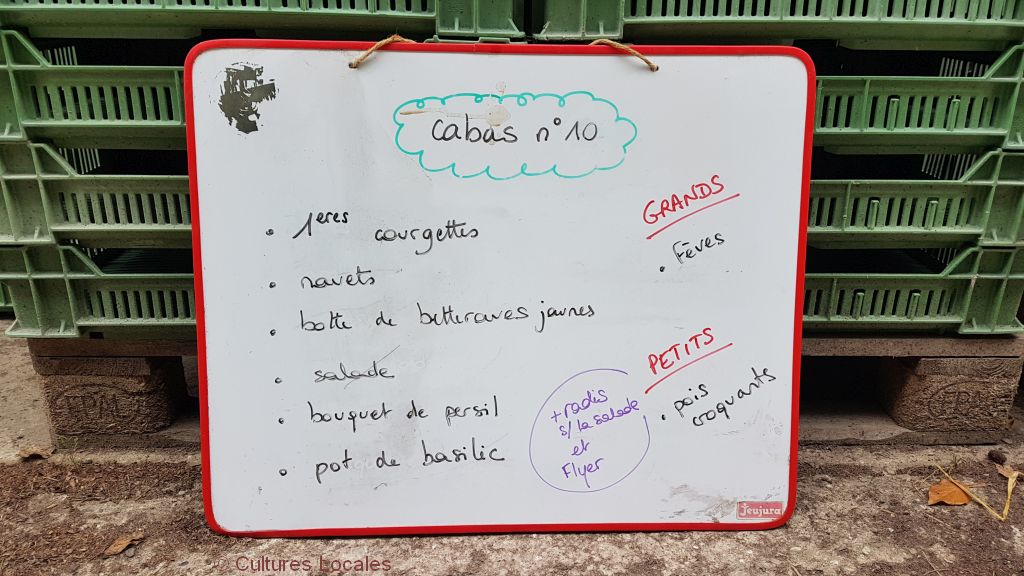 cabas n°10
• 1ères courgettes
• navets
• botte de betteraves jaunes
• salade
• bouquet de persil
• pot de basilic
GRANDS
• Fèves
PETITS
• pois
croquants
+ radis
s/ la salade
et
Flyer
Jeujura
© Cultures Locales